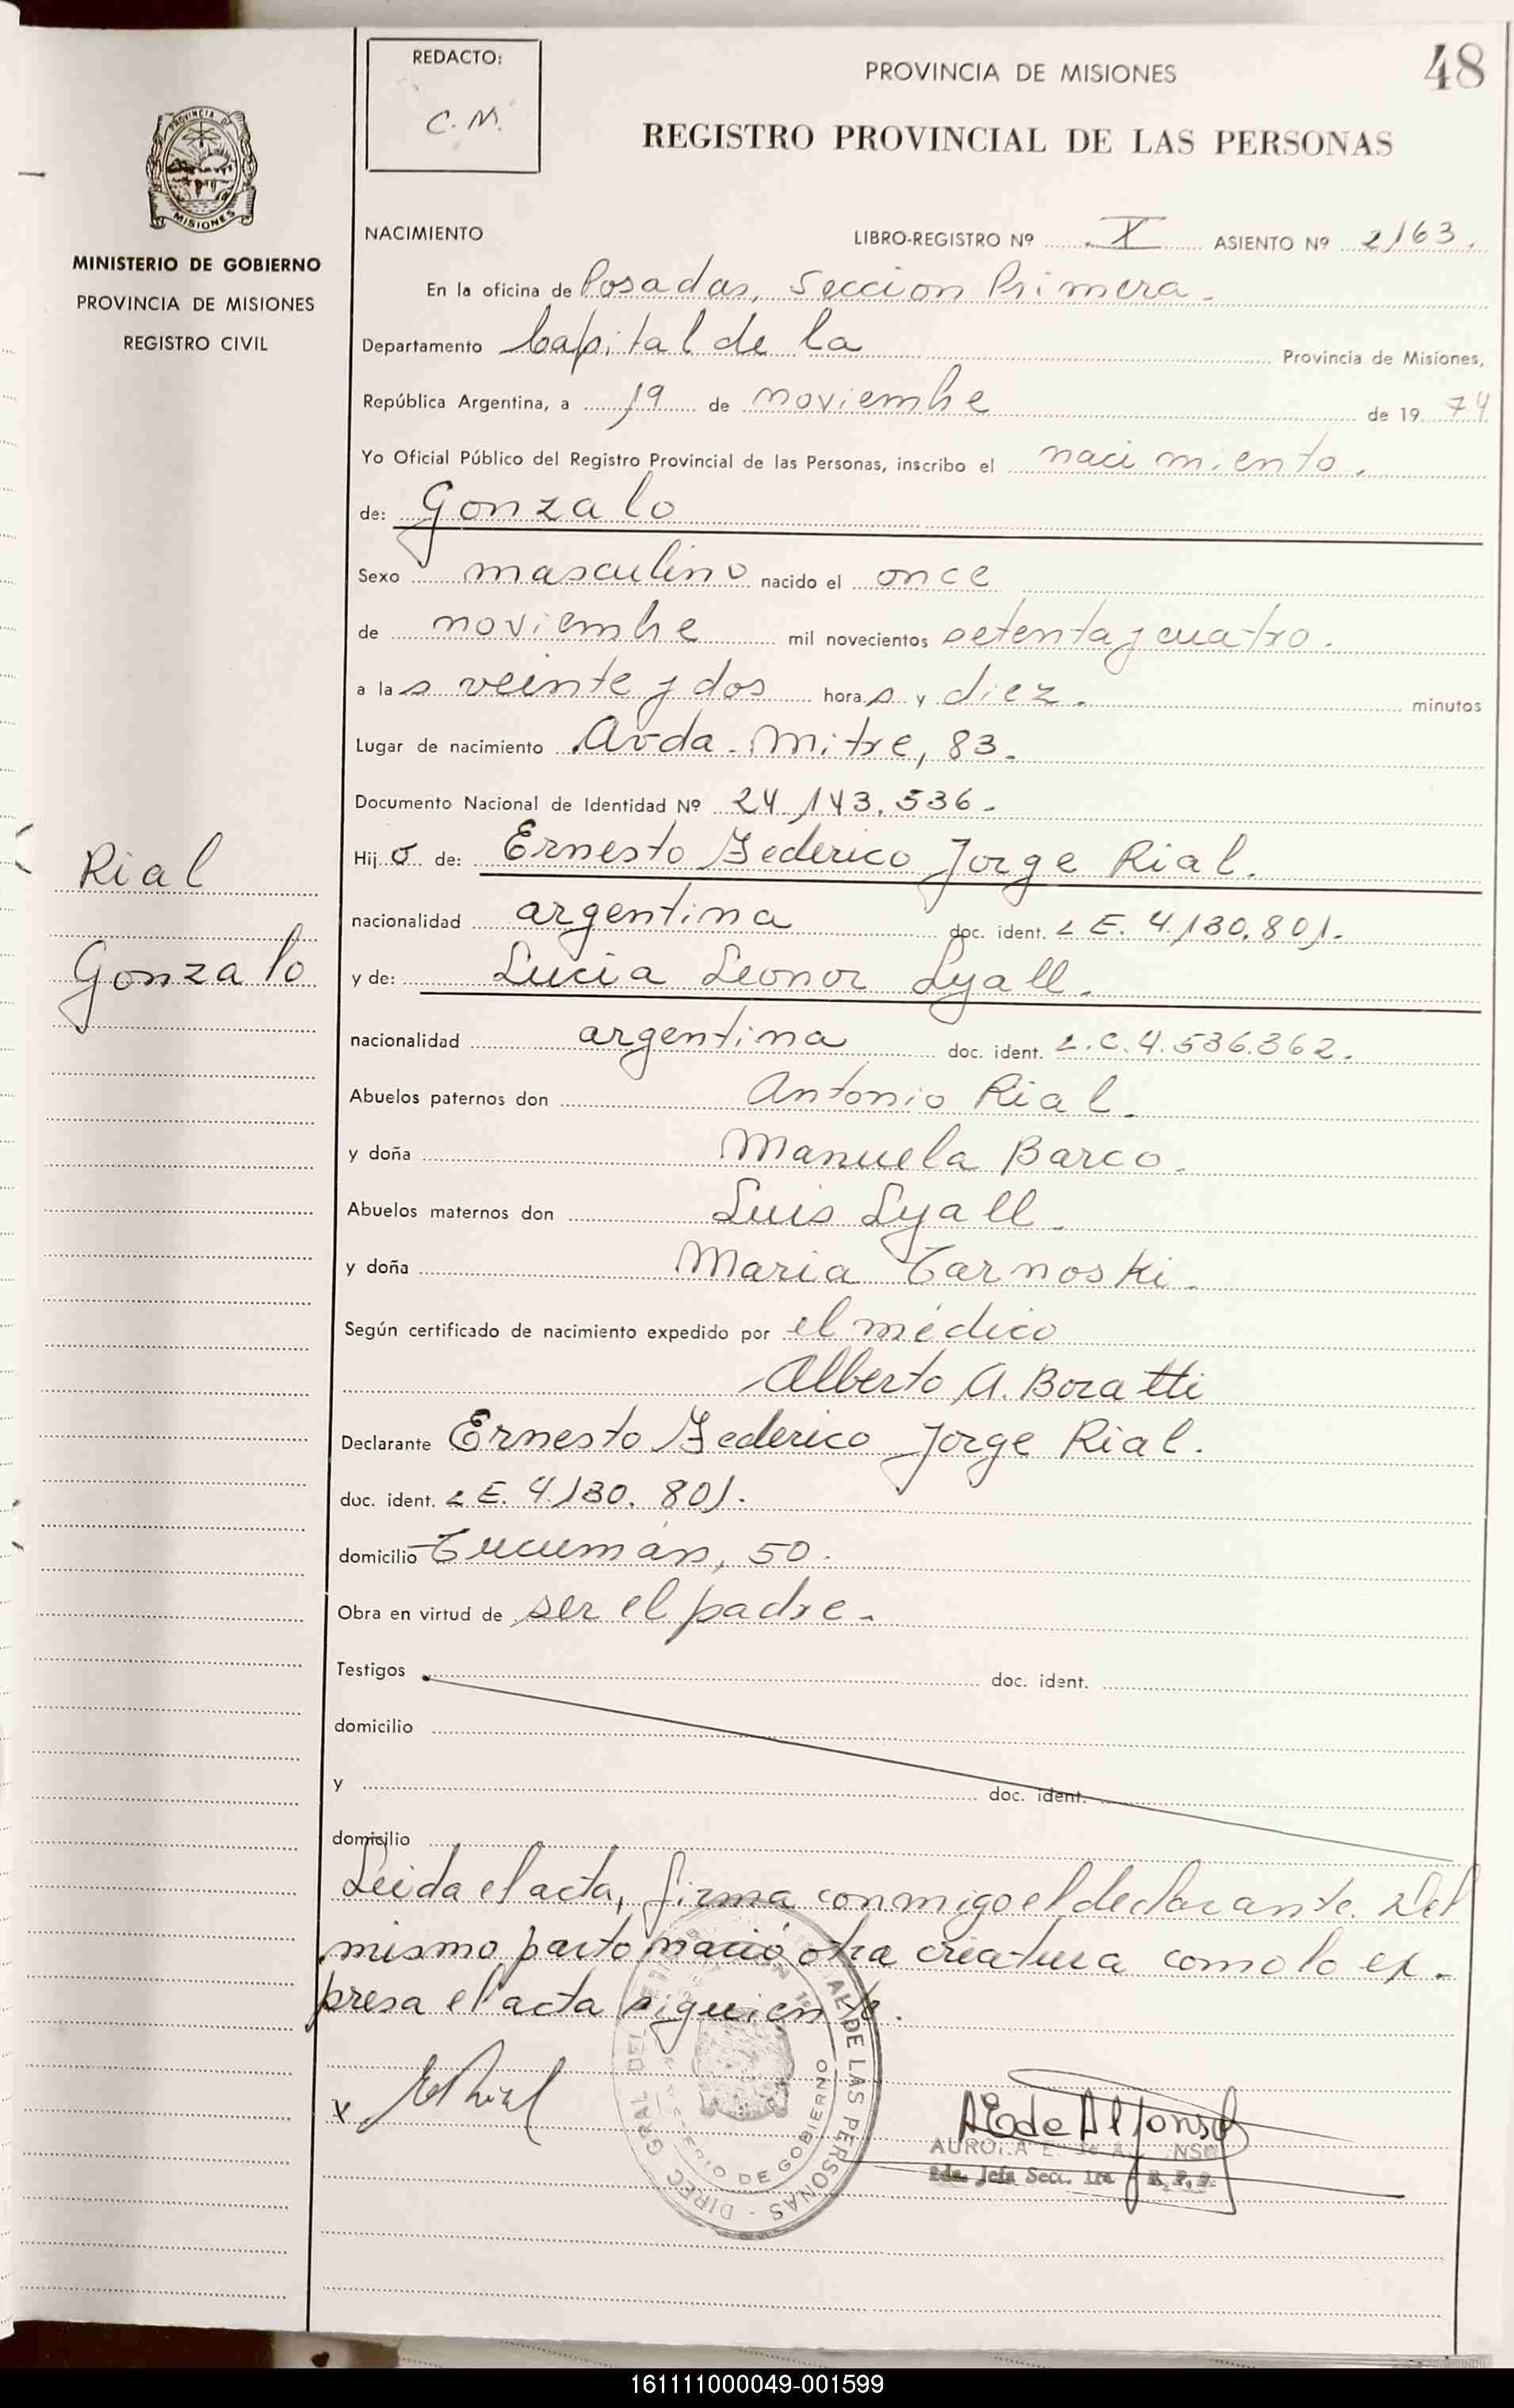 REDACTO:
C. M.
PROVINCIA DE MISIONES
48
REGISTRO PROVINCIAL DE LAS PERSONAS
PROVINCIA DE
MISIONES
MINISTERIO DE GOBIERNO
PROVINCIA DE MISIONES
REGISTRO CIVIL
NACIMIENTO LIBRO-REGISTRO Nº X ASIENTO Nº 2163.
En la oficina de Posadas, Seccion Primera.
Departamento Capital de la Provincia de Misiones,
República Argentina, a 19 de noviembre de 1974
Yo Oficial Público del Registro Provincial de las Personas, inscribo el nacimiento.
de: Gonzalo
Sexo masculino nacido el once
de noviembre mil novecientos setenta y cuatro.
a las veinte y dos horas y diez. minutos
Lugar de nacimiento Avda. Mitre, 83.
Documento Nacional de Identidad Nº 24.143.536.
Rial
Gonzalo
Hijo de: Ernesto Federico Jorge Rial.
nacionalidad argentina doc. ident. L E. 4.130.801.
y de: Lucia Leonor Lyall.
nacionalidad argentina doc. ident. L.C. 4.536.362.
Abuelos paternos don Antonio Rial.
y doña Manuela Barco.
Abuelos maternos don Luis Lyall.
y doña Maria Tarnoski.
Según certificado de nacimiento expedido por el médico
Alberto A. Boratti
Declarante Ernesto Federico Jorge Rial.
doc. ident. L E. 4.130.801.
domicilio Tucumán, 50.
Obra en virtud de ser el padre.
Testigos doc. ident.
domicilio
y doc. ident.
domicilio
Leida el acta, firma conmigo el declarante. Del
mismo parto nació otra criatura como lo ex-
presa el acta siguiente.
x
AE de Alfonso
2da. Jefa Secc. 1ra. R. P. P.
DE LAS PERSONAS - DIREC. GRAL. DEL
DE GOBIERNO
161111000049-001599